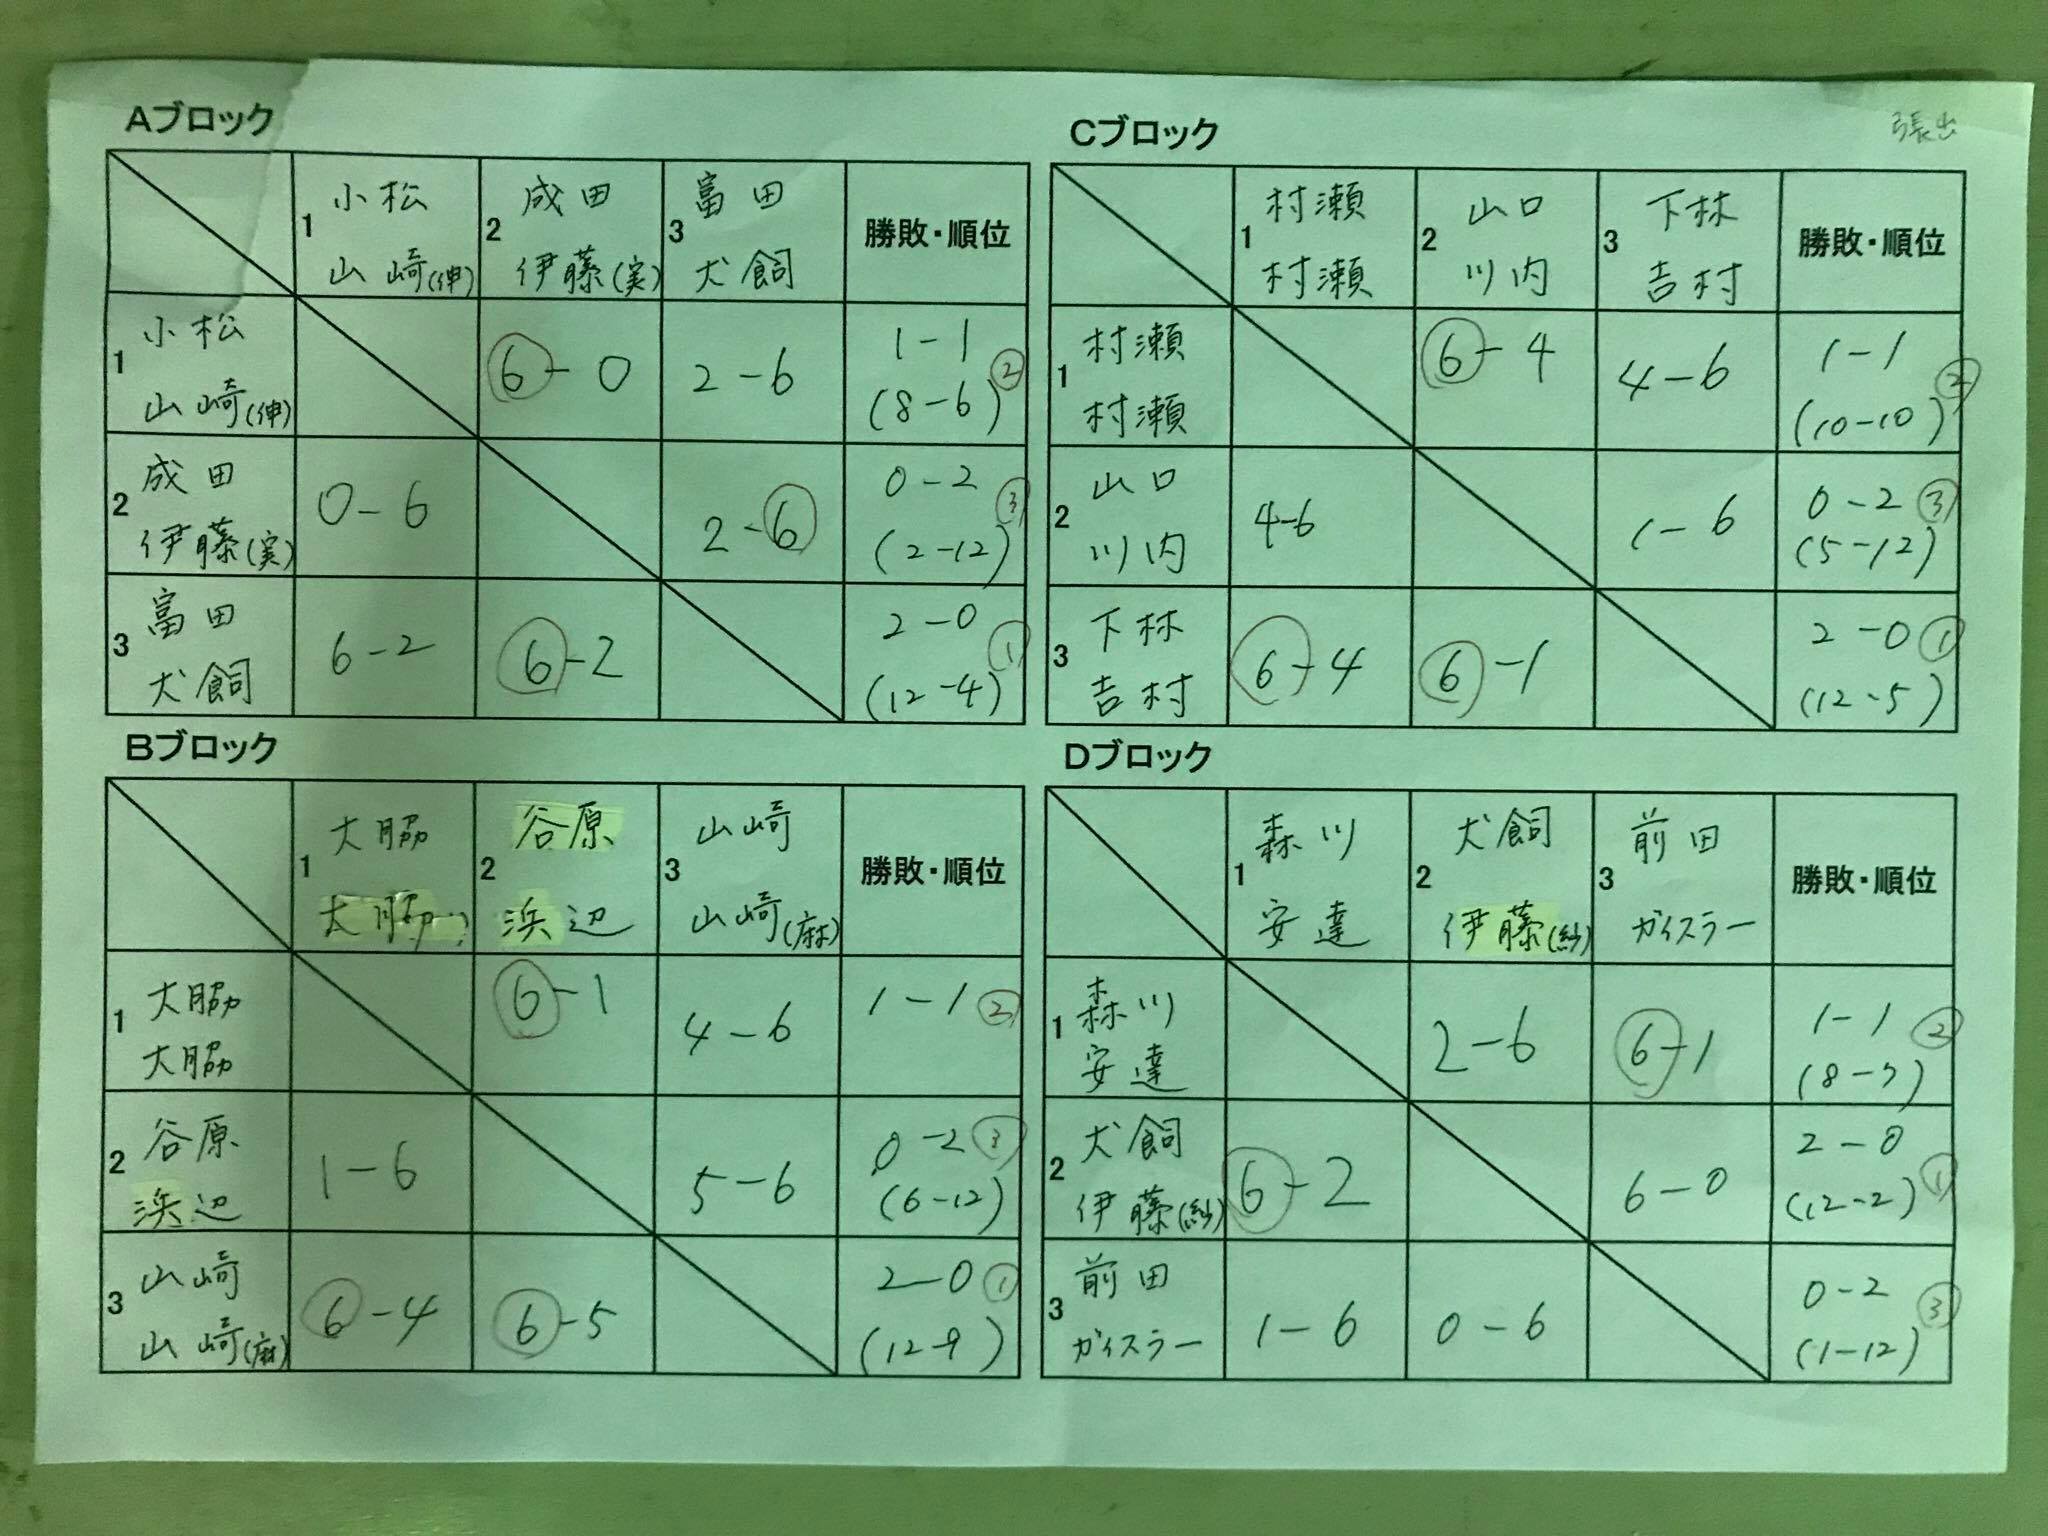 張出
Aブロック
1 小松 山崎(伸) 2 成田 伊藤(実) 3 富田 犬飼 勝敗・順位
1 小松 山崎(伸) 6-0 2-6 1-1 (8-6) ②
2 成田 伊藤(実) 0-6 2-6 0-2 (2-12) ③
3 富田 犬飼 6-2 6-2 2-0 (12-4) ①
Bブロック
1 大脇 大脇 2 谷原 浜辺 3 山崎 山崎(麻) 勝敗・順位
1 大脇 大脇 6-1 4-6 1-1 ②
2 谷原 浜辺 1-6 5-6 0-2 (6-12) ③
3 山崎 山崎(麻) 6-4 6-5 2-0 (12-9) ①
Cブロック
1 村瀬 村瀬 2 山口 川内 3 下林 吉村 勝敗・順位
1 村瀬 村瀬 6-4 4-6 1-1 (10-10) ②
2 山口 川内 4-6 1-6 0-2 (5-12) ③
3 下林 吉村 6-4 6-1 2-0 (12-5) ①
Dブロック
1 森川 安達 2 犬飼 伊藤(紗) 3 前田 ガイスラー 勝敗・順位
1 森川 安達 2-6 6-1 1-1 (8-7) ②
2 犬飼 伊藤(紗) 6-2 6-0 2-0 (12-2) ①
3 前田 ガイスラー 1-6 0-6 0-2 (1-12) ③